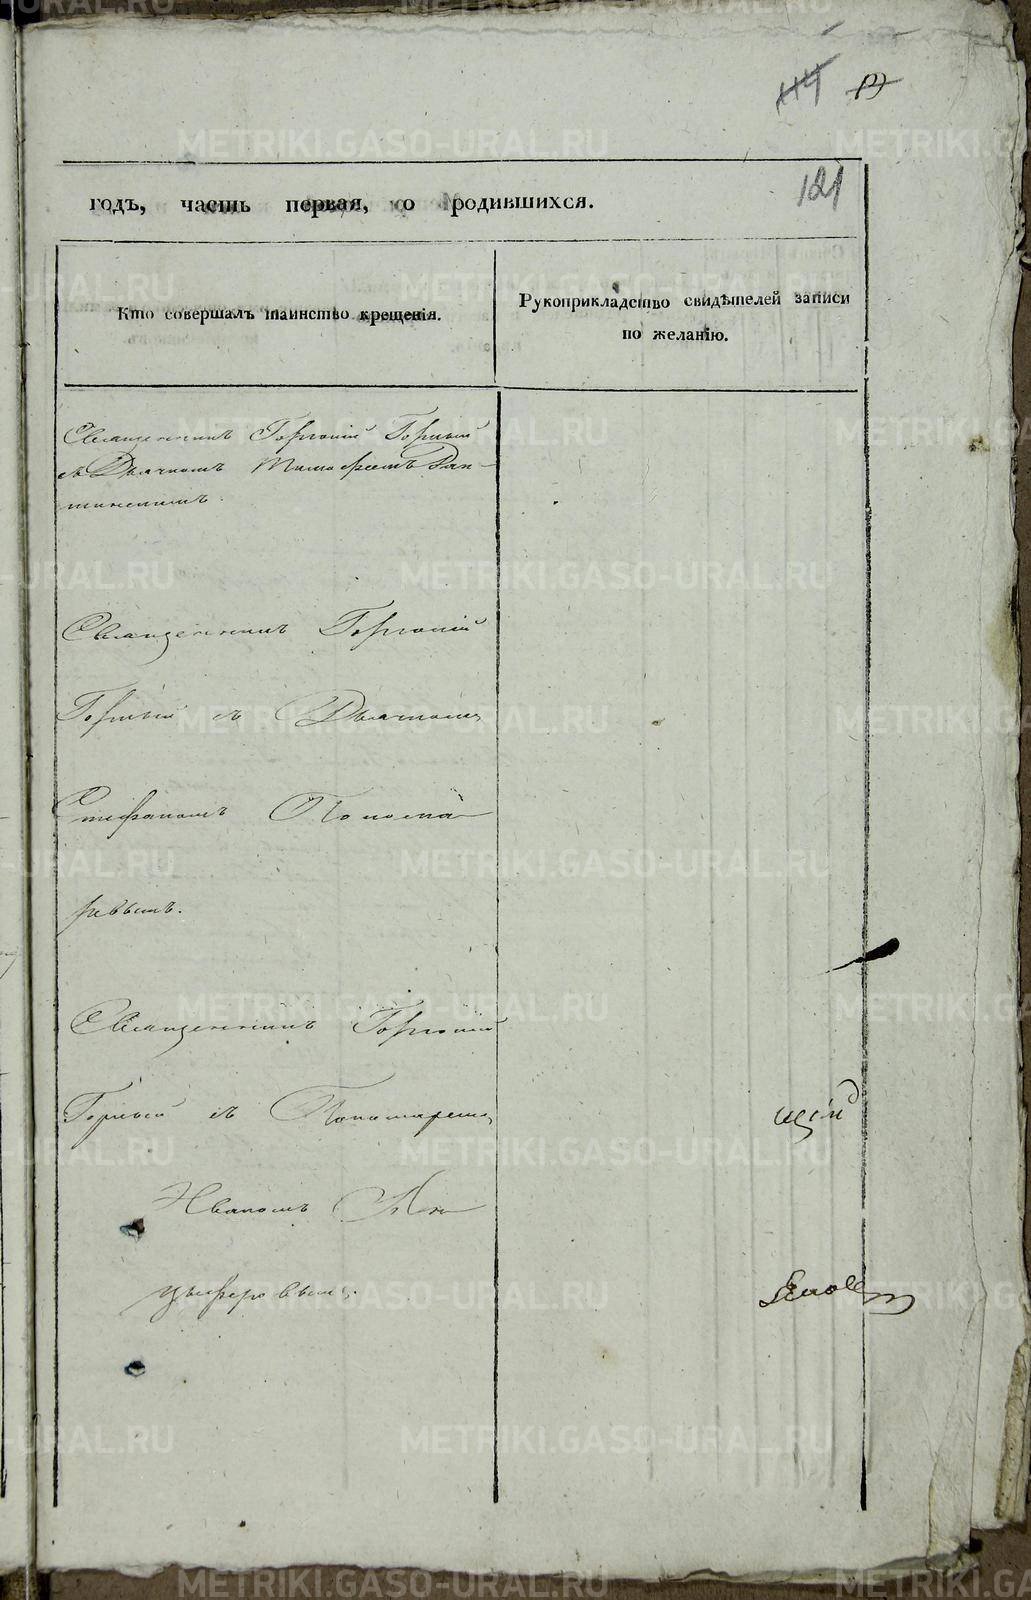 121
годъ, часть первая, о родившихся.
Кто совершалъ таинство крещенія.
Рукоприкладство свидѣтелей записи
по желанію.
Священникъ Горгоній Горный
съ Дьячкомъ Тимофеемъ
Священникъ Горгоній
Горный съ Дьячкомъ
Стефаномъ Понома-
ревымъ.
Священникъ Горгоній
Горный съ Пономаремъ
Иваномъ
METRIKI.GASO-URAL.RU